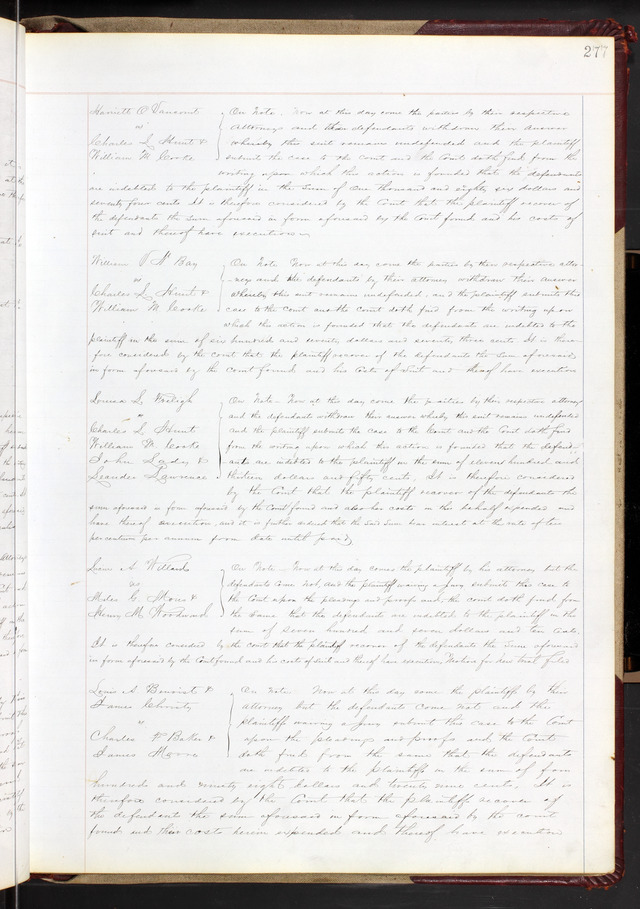 277
Harriett O Vansant } On Note. Now at this day come the parties by their respective
vs attorneys and the defendants withdraw their answer
Charles L Hunt & whereby this suit remains undefended and the plaintiff
William M Cooke submit the case to the court and the Court doth find from the
writing upon which this action is founded that the defendants
are indebted to the plaintiff in the sum of One thousand and eighty six dollars and
seventy four cents It is therefore considered by the Court that the plaintiff recover of
the defendants the sum aforesaid in form aforesaid by the Court found and his costs of
suit and thereof have execution
William Bay } On Note Now at this day come the parties by their respective attor-
vs neys and the defendants by their attorney withdraw their answer
Charles L Hunt & whereby this suit remains undefended and the plaintiff submits this
William M. Cooke case to the Court and the Court doth find from the writing upon
which this action is founded that the defendant are indebted to the
plaintiff in the sum of six hundred and seventy dollars and seventy three cents It is there-
fore considered by the court that the plaintiff recover of the defendants the sum aforesaid
in form aforesaid by the court found and his Costs of Suit and thereof have execution
Louisa S. } On Note Now at this day come the parties by their respective attorneys
vs and the defendants withdraw their answer whereby this suit remains undefended
Charles L Hunt and the plaintiff submit the case to the Court and the Court doth find
William M Cooke from the writing upon which this action is founded that the defend-
John & ants are indebted to the plaintiff in the sum of eleven hundred and
Leander Lawrence thirteen dollars and fifty cents. It is therefore considered
by the Court that the plaintiff recover of the defendants the
sum aforesaid in form aforesaid by the Court found and also her costs in this behalf expended and
have thereof execution, and it is further ordered that the said sum bear interest at the rate of ten
per centum per annum from date until paid
A Willard } On Note Now at this day comes the plaintiff by his attorney but the
vs defendants come not, and the plaintiff waiving a Jury submits this case to
C. Moses & the Court upon the pleadings and proofs and the court doth find from
Henry M. Woodward the same that the defendants are indebted to the plaintiff in the
sum of seven hundred and seven dollars and ten cents.
It is therefore considered by the court that the plaintiff recover of the defendants the sum aforesaid
in form aforesaid by the Court found and his costs of suit and thereof have execution. Motion for New trial filed
Louis A Benoist & } On Note Now at this day come the plaintiffs by their
James attorney but the defendant come not and the
vs plaintiffs waiving a Jury submit this case to the Court
Charles Baker & upon the pleadings and proofs and the Court
James doth find from the same that the defendants
are indebted to the plaintiffs in the sum of four
hundred and ninety eight dollars and twenty nine cents, It is
therefore considered by the Court that the plaintiffs recover of
the defendant the sum aforesaid in form aforesaid by the court
found and their costs herein expended and thereof have execution